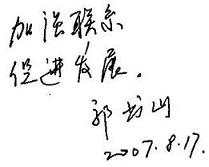 加强联系
促进发展。
郭书山
2007.8.17.